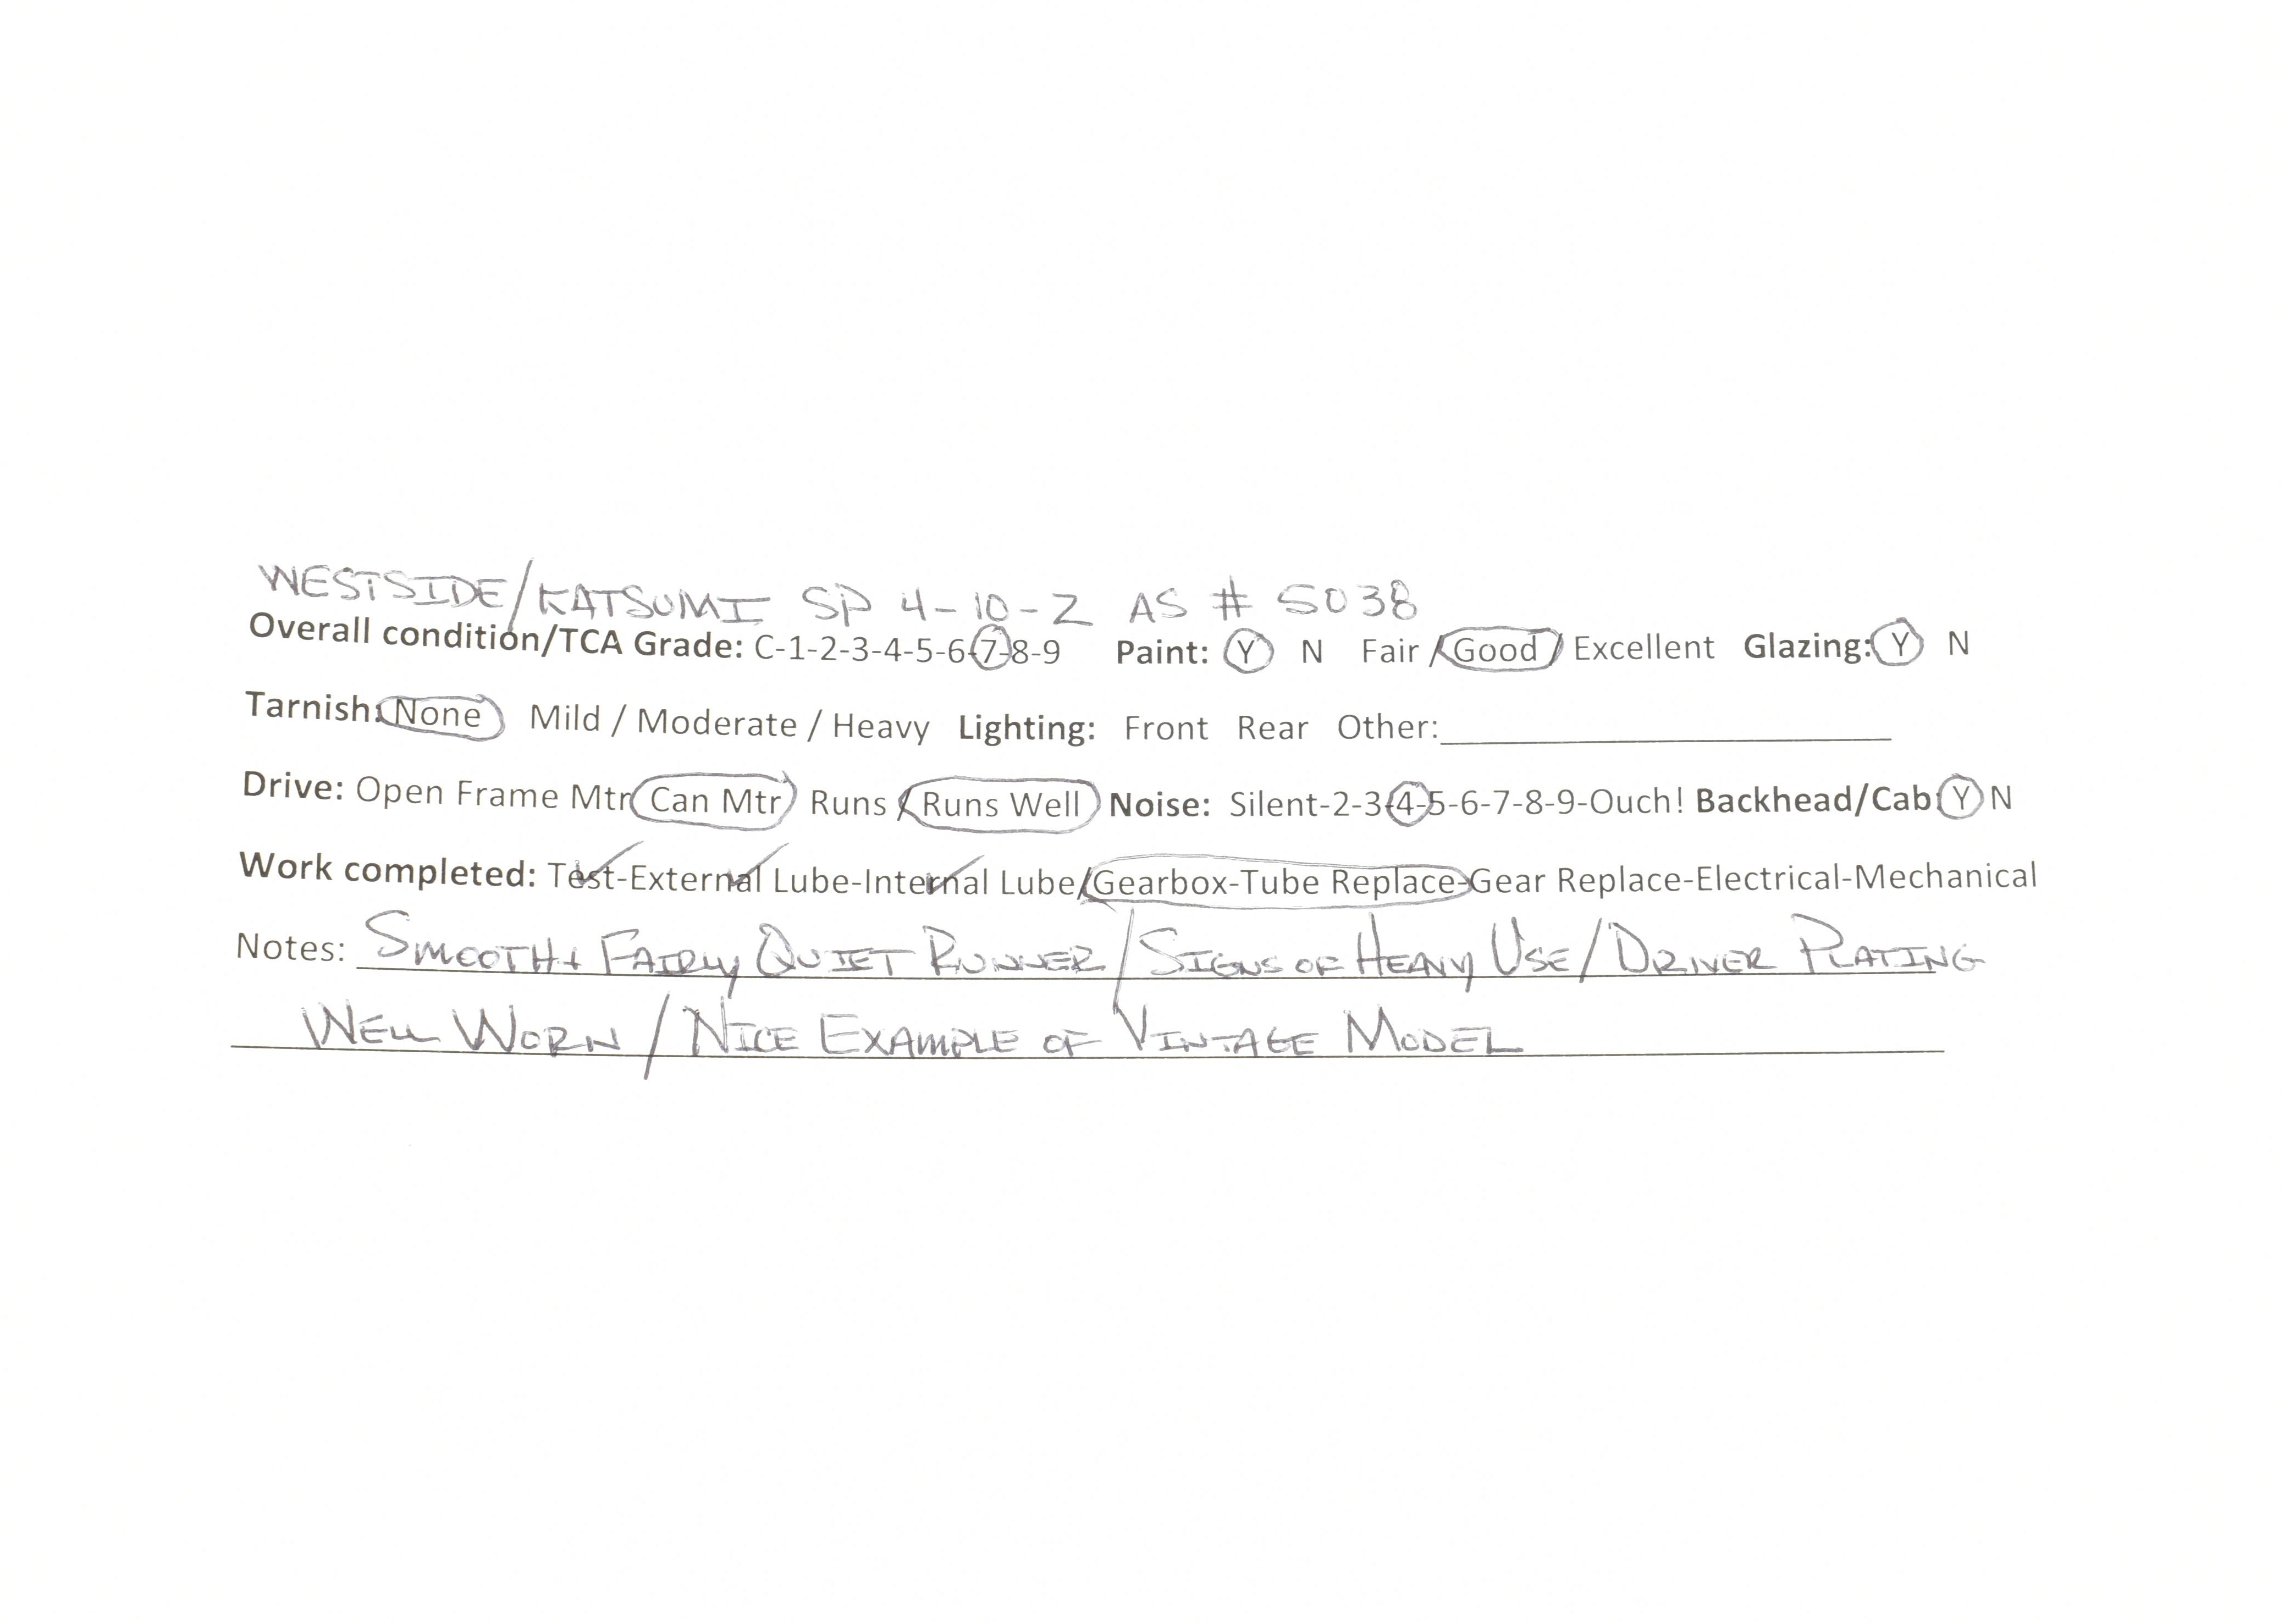 WESTSIDE/KATSUMI SP 4-10-2 AS # 5038
Overall condition/TCA Grade: C-1-2-3-4-5-6-7-8-9 Paint: Y N Fair / Good / Excellent Glazing: Y N
Tarnish: None Mild / Moderate / Heavy Lighting: Front Rear Other:
Drive: Open Frame Mtr Can Mtr Runs / Runs Well Noise: Silent-2-3-4-5-6-7-8-9-Ouch! Backhead/Cab Y N
Work completed: Test-External Lube-Internal Lube/Gearbox-Tube Replace-Gear Replace-Electrical-Mechanical
Notes: SMOOTH + FAIRLY QUIET RUNNER / SIGNS OF HEAVY USE / DRIVER PLATING
WELL WORN / NICE EXAMPLE OF VINTAGE MODEL